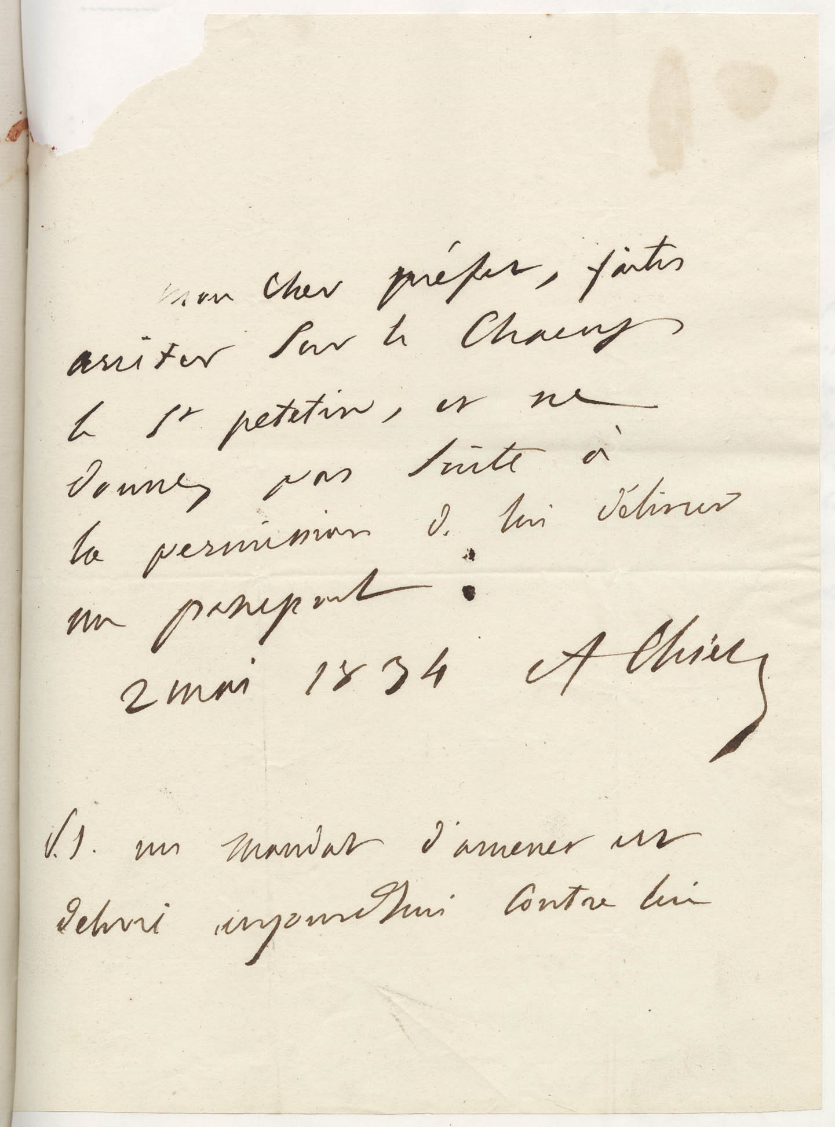 mon cher préfet, faites
arrêter sur le champ
le Sr petetin, et ne
donnez pas suite à
la permission de lui délivrer
un passeport :
2 mai 1834 A Thiers
P.S. un mandat d'amener est
délivré aujourd'hui contre lui